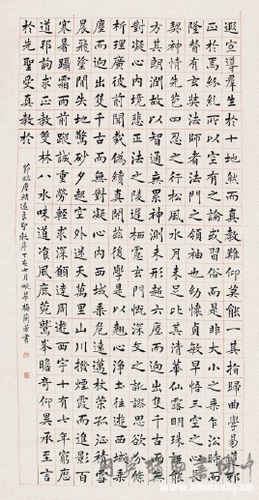 遐宣導群生於十地然而真教難仰莫能一其指歸曲學易遵邪
正於焉紛糺所以空有之論或習俗而是非大小之乘乍沿時而
隆替有玄奘法師者法門之領袖也幼懷貞敏早悟三空之心長
契神情先苞四忍之行松風水月未足比其清華仙露明珠詎能
方其朗潤故以智通無累神測未形超六塵而迥出隻千古而無
對凝心內境悲正法之陵遲栖慮玄門慨深文之訛謬思欲分條
析理廣彼前聞截偽續真開茲後學是以翹心淨土往遊西域乘
而迥出隻千古而無對凝心內境西域乘危遠邁杖策孤征積雪
晨飛塗間失地驚砂夕起空外迷天萬里山川撥煙霞而進影百
寒暑躡霜雨而前蹤誠重勞輕求深願達周遊西宇十有七年窮歷
道邦詢求正教雙林八水味道飡風鹿菀鷲峰瞻奇仰異承至言
於先聖受真教於
節臨唐褚遂良聖教序丁亥七月書